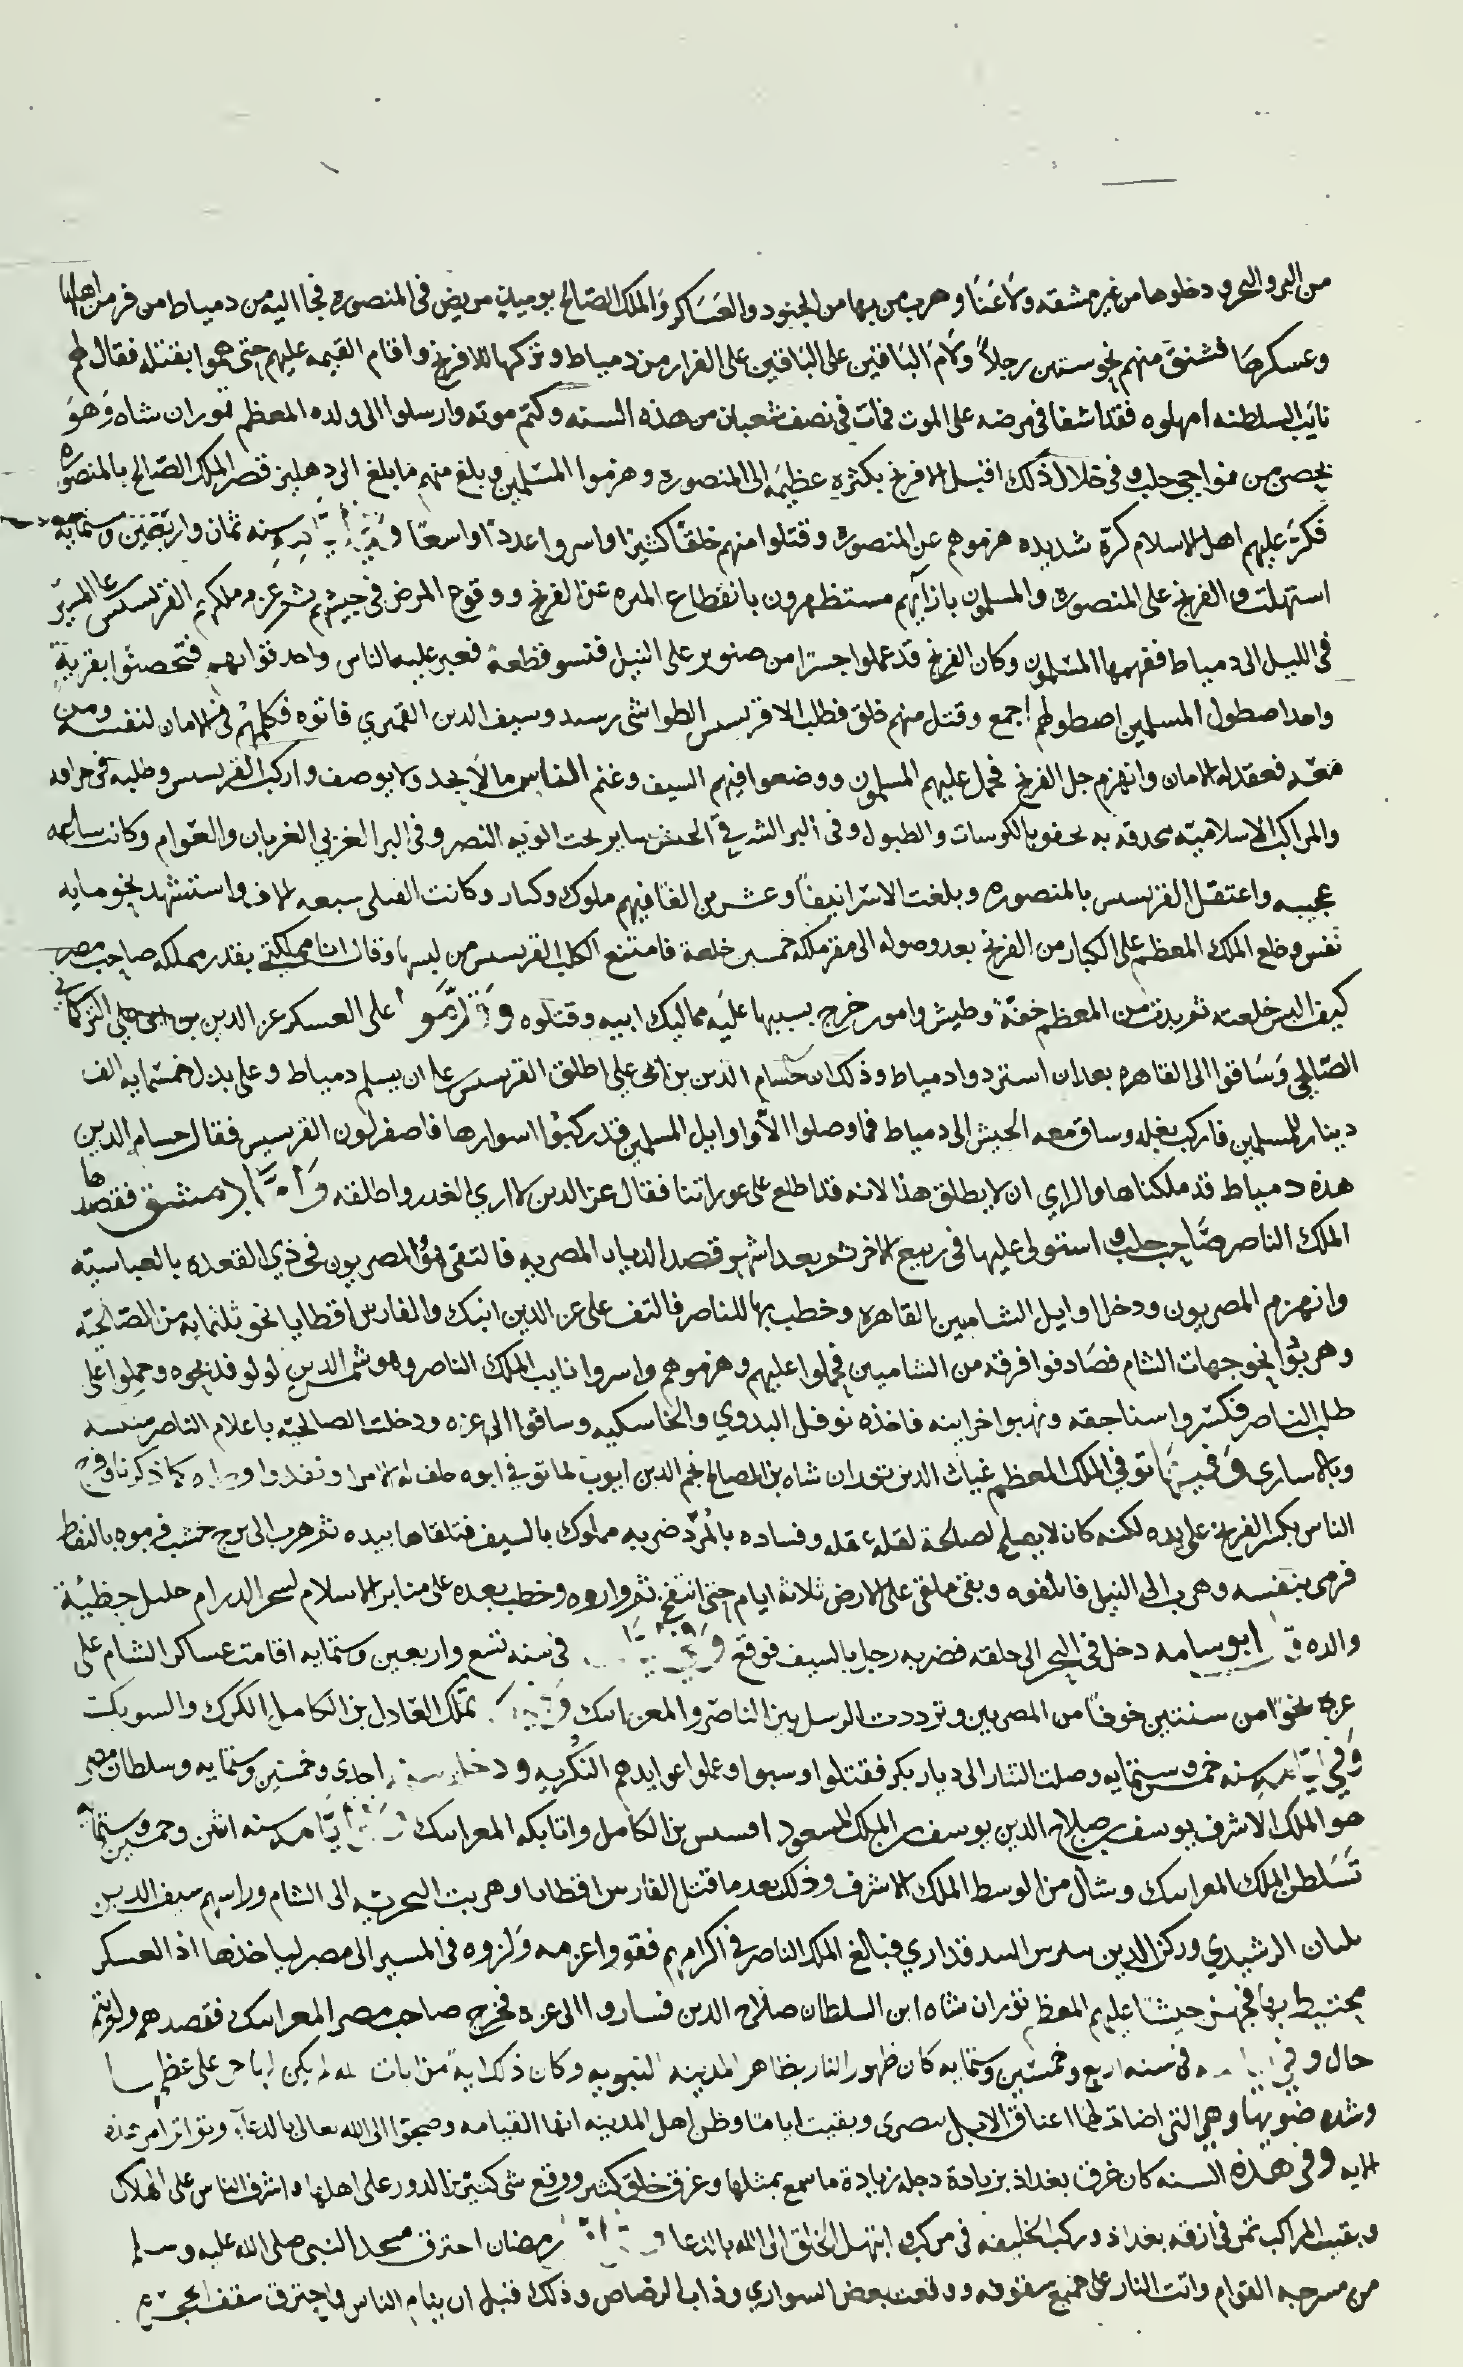 من البر والبحر ودخلوها من غير مشقه ولا عنا وهرب من بها من الجنود والعساكر والملك الصالح يوميذ مريض في المنصوره فجا اليه من دمياط من فر من اهلها
وعسكرها فشنق منهم نحو ستين رجلاً ولام الباقين على الباقين على الفرار من دمياط وتركها للافرنج واقام القيمه عليهم حتى هموا بقتله فقال لهم
نايب السلطنه امهلوه فقد اشفا في مرضه على الموت فمات في نصف شعبان من هذه السنه وكتم موته وارسلوا الى ولده المعظم توران شاه وهو
بحصن من نواحي حلب وفي خلال ذلك اقبل الافرنج بكثرة عظيمه الى المنصوره وهزموا المسلمين وبلغ منهم ما بلغ الى دهليز قصر الملك الصالح بالمنصوره
فكر عليهم اهل الاسلام كرة شديده هزموهم عن المنصوره وقتلوا منهم خلقا كثيرا واسروا عددا واسعا وفي سنه ثمان واربعين وستمايه
استهلت والفرنج على المنصوره والمسلمون بازايهم مستظهرون بانقطاع الميره عن الفرنج ووقوع المرض في جيشهم ثم عزم ملكهم الفرنسيس على المسير
في الليل الى دمياط ففهمها المسلمون وكان الفرنج قد عملوا جسرا من صنوبر على النيل فنسوا قطعه فعبر عليه الناس واحدقوا بهم فتحصنوا بقرية
واحد اصطول المسلمين اصطولهم اجمع وقتل منهم خلق فطلب الافرنسيس الطواشي رسيد وسيف الدين القيمري فاتوه فكلمهم في الامان لنفسه ومن
معه فعقد له الامان وانهزم جل الفرنج فحمل عليهم المسلمون ووضعوا فيهم السيف وغنم الناس مالا يحد ولا يوصف واركب الفرنسيس وطلبه في حراقه
والمراكب الاسلاميه محدقه به تخفق بالكوسات والطبول وفي البر الشرقي الجيش ساير تحت الويه النصر وفي البر الغربي العربان والعوام وكانت ساعه
عجيبه واعتقل الفرنسيس بالمنصوره وبلغت الاسرا نيفا وعشرين الفا فيهم ملوك وكبار وكانت القتلى سبعه الاف واستشهد نحو مايه
نفس وخلع الملك المعظم على الكبار من الفرنج بعد وصوله الى مقر ملكه خمسين خلعة فامتنع الكلب الفرنسيس من لبسها وقال انا مملكتي بقدر مملكه صاحب مصر
كيف البس خلعته ثم بدت من المعظم خفة وطيش وامور خرج بسببها عليه مماليك ابيه وقتلوه وقدموا على العسكر عز الدين التركماني
الصالحي وساقوا الى القاهره بعد ان استردوا دمياط وذلك ان حسام الدين بن ابي علي اطلق الفرنسيس على ان يسلم دمياط وعلى بذل خمسمايه الف
دينار للمسلمين فاركب بغله وساق معه الجيش الى دمياط فما وصلوا الا واوايل المسلمين قد ركبوا اسوارها فاصفر لون الفرنسيس فقال حسام الدين
هذه دمياط قد ملكناها والراي ان لا يطلق هذا لانه قد اطلع على عوراتنا فقال عز الدين لا اري الغدر واطلقه واما دمشق فقصدها
الملك الناصر صاحب حلب واستولى عليها في ربيع الاخر ثم بعد اشهر قصد الديار المصريه فالتقى هو والمصريون في ذي القعده بالعباسيه
وانهزم المصريون ودخل اوايل الشاميين القاهره وخطب بها للناصر فالتف على عز الدين ايبك والفارس اقطايا نحو ثلثمايه من الصالحيه
وهربوا نحو جهات الشام فصادفوا فرقه من الشاميين فحملوا عليهم وهزموهم واسروا نايب الملك الناصر وهو شمس الدين لولو فذبحوه وحملوا على
طلب الناصر فكسروا سناجقه ونهبوا خزاينه فاخذه نوفل البدوي والخاسكيه وساقوا الى غزه ودخلت الصالحيه باعلام الناصر منكسه
وبالاسارى وفيها توفي الملك المعظم غياث الدين توران شاه بن الصالح نجم الدين ايوب لما توفي ابوه حلف له الامرا ونفدوا وراه كما ذكرنا وفرح
الناس بكسر الفرنج على يده لكنه كان لا يصلح لصالحة لقلة عقله وفساده بالمُرد ضربه مملوك بالسيف فتلقاها بيده ثم هرب الى برج خشب فرموه بالنفط
فرمى بنفسه وهرب الى النيل فاتلفوه وبقي ملقى على الارض ثلاثة ايام حتى انتفخ ثم واروه وخطب بعده على منابر الاسلام لشجر الدر ام خليل حظية
والده قال ابو سامه دخل في البحر الى حلقه فضربه رجل بالسيف فوقع وفي سنه تسع واربعين وستمايه اقامت عساكر الشام على
غزه نحوا من سنتين خوفا من المصريين وترددت الرسل بين الناصر والمعز ايبك تملك العادل بن الكامل الكرك والشوبك
وفي سنه خمسين وستمايه وصلت التتار الى ديار بكر فقتلوا وسبوا وعملوا عوايدهم النُكريه ودخلت سنه احدى وخمسين وستمايه وسلطان مصر
هو الملك الاشرف يوسف بن صلاح الدين يوسف بن الملك المسعود اقسيس بن الكامل واتابكه المعز ايبك سنه اثنين وخمسين وستمايه
تسلطن الملك المعز ايبك وشال من الوسط الملك الاشرف وذلك بعد ما قتل الفارس اقطايا وهربت البحريه الى الشام وراسهم سيف الدين
بلبان الرشيدي وركن الدين بيبرس البندقداري فبالغ الملك الناصر في اكرامهم فقووا عزمه ولزوه في المسير الى مصر لياخذها اذ العسكر
مختبط بها فجهز جيشا عليهم المعظم توران شاه ابن السلطان صلاح الدين فساروا الى غزه فخرج صاحب مصر المعز ايبك فقصدهم ولم يتم
حال وفي سنه اربع وخمسين وستمايه كان ظهور النار بظاهر المدينه النبويه وكان ذلك ايه من ايات الله لم يكن لها حر على عظمها
وشده ضويها وهي التي اضات لها اعناق الابل ببصرى وبقيت اياما وظن اهل المدينه انها القيامه وضجوا الى الله تعالى بالدعا وتواتر امر هذه
الايه وفي هذه السنه كان غرق بغداذ بزيادة دجله زيادة ما سمع بمثلها وغرق خلق كثير ووقع شي كثير من الدور على اهلها واشرف الناس على الهلاك
وبقيت المراكب تمر في ازقه بغداذ وركب الخليفه في مركب وابتهل الخلق الى الله بالدعا رمضان احترق مسجد النبي صلى الله عليه وسلم
من مسرجه القوام واتت النار على جميع سقوفه ووقعت بعض السواري وذاب الرصاص وذلك قبل ان ينام الناس واحترق سقف الحجره